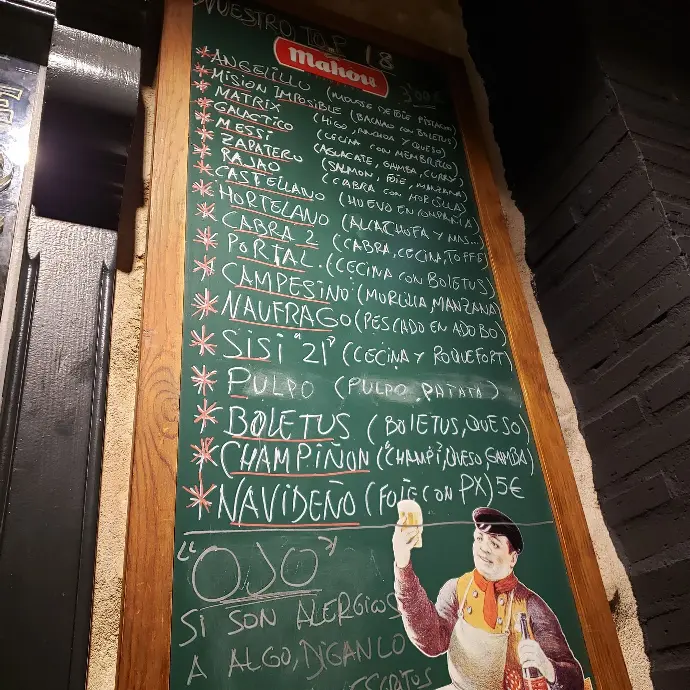 NUESTRO TOP 18
Mahou
* ANGELILLO (MOUSSE DE PISTACHO)
* MISION IMPOSIBLE (BACALAO CON BOLETUS)
* MATRIX (HIGO, ANCHOA Y QUESO)
* GALACTICO (CECINA CON MEMBRILLO)
* MESSI (AGUACATE, GAMBA, CURRY)
* ZAPATERO (SALMON, FOIE, MANZANA)
* RAJAO (CABRA CON MORCILLA)
* CASTELLANO (HUEVO EN COMPAÑIA)
* HORTELANO (ALCACHOFA Y MAS...)
* CABRA 2 (CABRA, CECINA, TOFFE)
* PORTAL. (CECINA CON BOLETUS)
* CAMPESINO (MORCILLA, MANZANA)
* NAUFRAGO (PESCADO EN ADOBO)
* SISI "21" (CECINA Y ROQUEFORT)
* PULPO (PULPO, PATATA)
* BOLETUS (BOLETUS, QUESO)
* CHAMPIÑON ("CHAMPI", QUESO, GAMBA)
* NAVIDEÑO (FOIE CON PX) 5€
"OJO"
SI SON ALERGICOS
A ALGO, DIGANLO